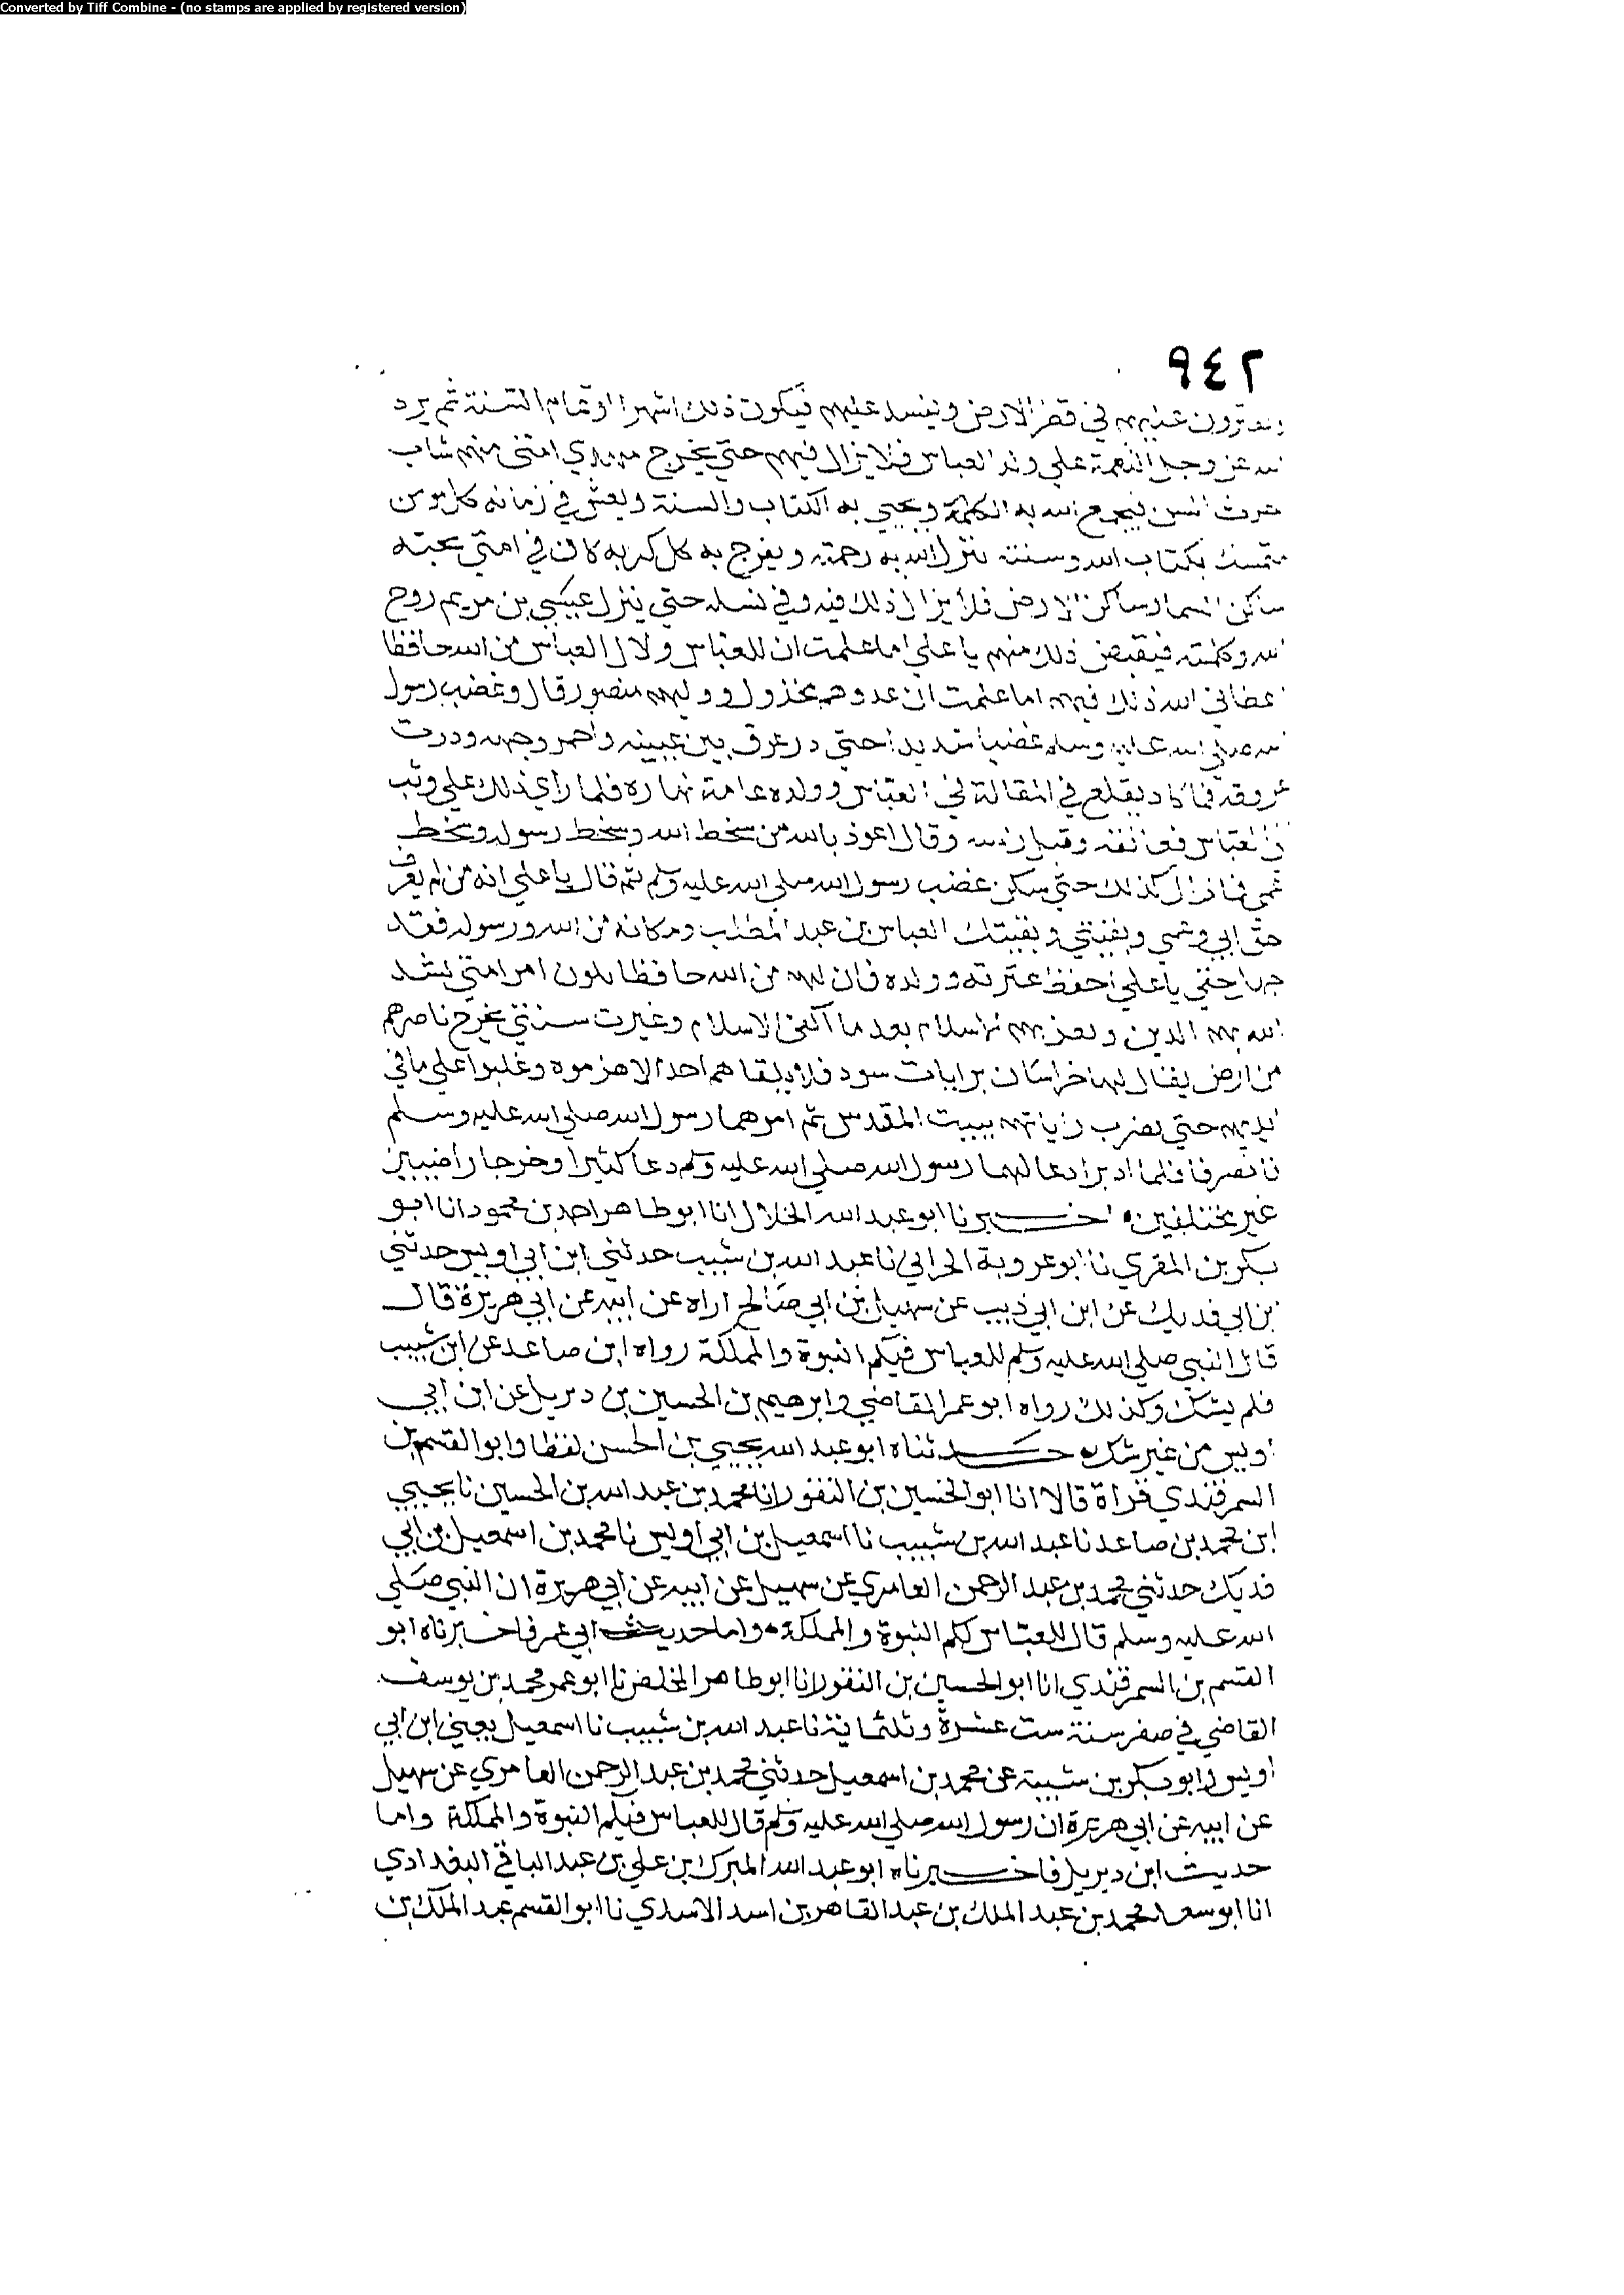 Converted by Tiff Combine - (no stamps are applied by registered version)
٩٤٢
في قطر الارض ويفسد عليهم فيكون ذلك اشهرا او تمام السنة ثم يرد
عز وجل النعمة علي ولد العباس فلا يزال فيهم حتي يخرج مهدي امتي منهم شاب
حدث السن فيجمع الله به الكلمة ويحيي به الكتاب والسنة ويعيش في زمانه كل مومن
بكتاب الله وسنته ينزل الله به رحمته ويفرج به كل كربه كان في امتي يحبه
ساكن السما وساكن الارض فلا يزال ذلك فيه وفي نسله حتي ينزل عيسي بن مريم روح
الله وكلمته فيقبض ذلك منهم يا علي اما علمت ان للعباس ولال العباس من الله حافظا
اعطاني الله ذلك فيهم اما علمت ان عدوهم مخذول ووليهم منصور قال وغضب رسول
الله صلي الله عليه وسلم غضبا شديدا حتي در عرق بين عينيه واحمر وجهه ودرت
عروقه فما كاد يقلع في المقالة في العباس وولده عامة نهاره فلما راي ذلك علي وثب
العباس فعانقه وقبل راسه وقال اعوذ بالله من سخط الله وسخط رسوله وسخط
عمي فما زال كذلك حتي سكن غضب رسول الله صلي الله عليه وسلم ثم قال يا علي انه من لم يعرف
حق ابي وعمي وبقيتي وبقيتك العباس بن عبد المطلب ومكانه من الله ورسوله فقد
جهل حقي يا علي احفظ عترته وولده فان لهم من الله حافظا يلون امر امتي يشد
الله بهم الدين ويعز بهم الاسلام بعد ما اكفي الاسلام وغيرت سنتي يخرج ناصرهم
من ارض يقال لها خراسان برايات سود فلا يلقاهم احد الا هزموه وغلبوا علي ما في
ايديهم حتي يضرب راياتهم ببيت المقدس ثم امرهما رسول الله صلي الله عليه وسلم
فانصرفا فلما ادبرا دعا لهما رسول الله صلي الله عليه وسلم دعا كثيرا وخرجا راضيين
غير مختلفين اخبرنا ابو عبد الله الخلال انا ابو طاهر احمد بن محمود انا ابو
بكر بن المقري نا ابو عروبة الحراني نا عبد الله بن شبيب حدثني ابن ابي اويس حدثني
بن ابي فديك عن ابن ابي ذيب عن سهيل بن ابي صالح اراه عن ابيه عن ابي هريرة قال
قال النبي صلي الله عليه وسلم للعباس فيكم النبوة والمملكة رواه ابن صاعد عن ابن شبيب
فلم يشك وكذلك رواه ابو عمر القاضي وابرهيم بن الحسين بن ديزيل عن ابن ابي
اويس من غير شك حدثناه ابو عبد الله يحيي بن الحسن لفظا وابو القسم بن
السمرقندي قراة قالا انا ابو الحسين بن النقور انا محمد بن عبد الله بن الحسين نا يحيي
ابن محمد بن صاعد نا عبد الله بن شبيب نا اسمعيل بن ابي اويس نا محمد بن اسمعيل بن ابي
فديك حدثني محمد بن عبد الرحمن العامري عن سهيل عن ابيه عن ابي هريرة ان النبي صلي
الله عليه وسلم قال للعباس لكم النبوة والمملكة واما حديث ابي عمر فاخبرناه ابو
القسم بن السمرقندي انا ابو الحسين بن النقور انا ابو طاهر المخلص نا ابو عمر محمد بن يوسف
القاضي في صفر سنة ست عشرة وثلثماية نا عبد الله بن شبيب نا اسمعيل يعني ابن ابي
اويس وابو بكر بن شيبة عن محمد بن اسمعيل حدثني محمد بن عبد الرحمن العامري عن سهيل
عن ابيه عن ابي هريرة ان رسول الله صلي الله عليه وسلم قال للعباس فيكم النبوة والمملكة واما
حديث ابن ديزيل فاخبرناه ابو عبد الله المبرك بن علي بن عبد الباقي البغدادي
انا ابو سعد محمد بن عبد الملك بن عبد القاهر بن اسد الاسدي نا ابو القسم عبد الملك بن